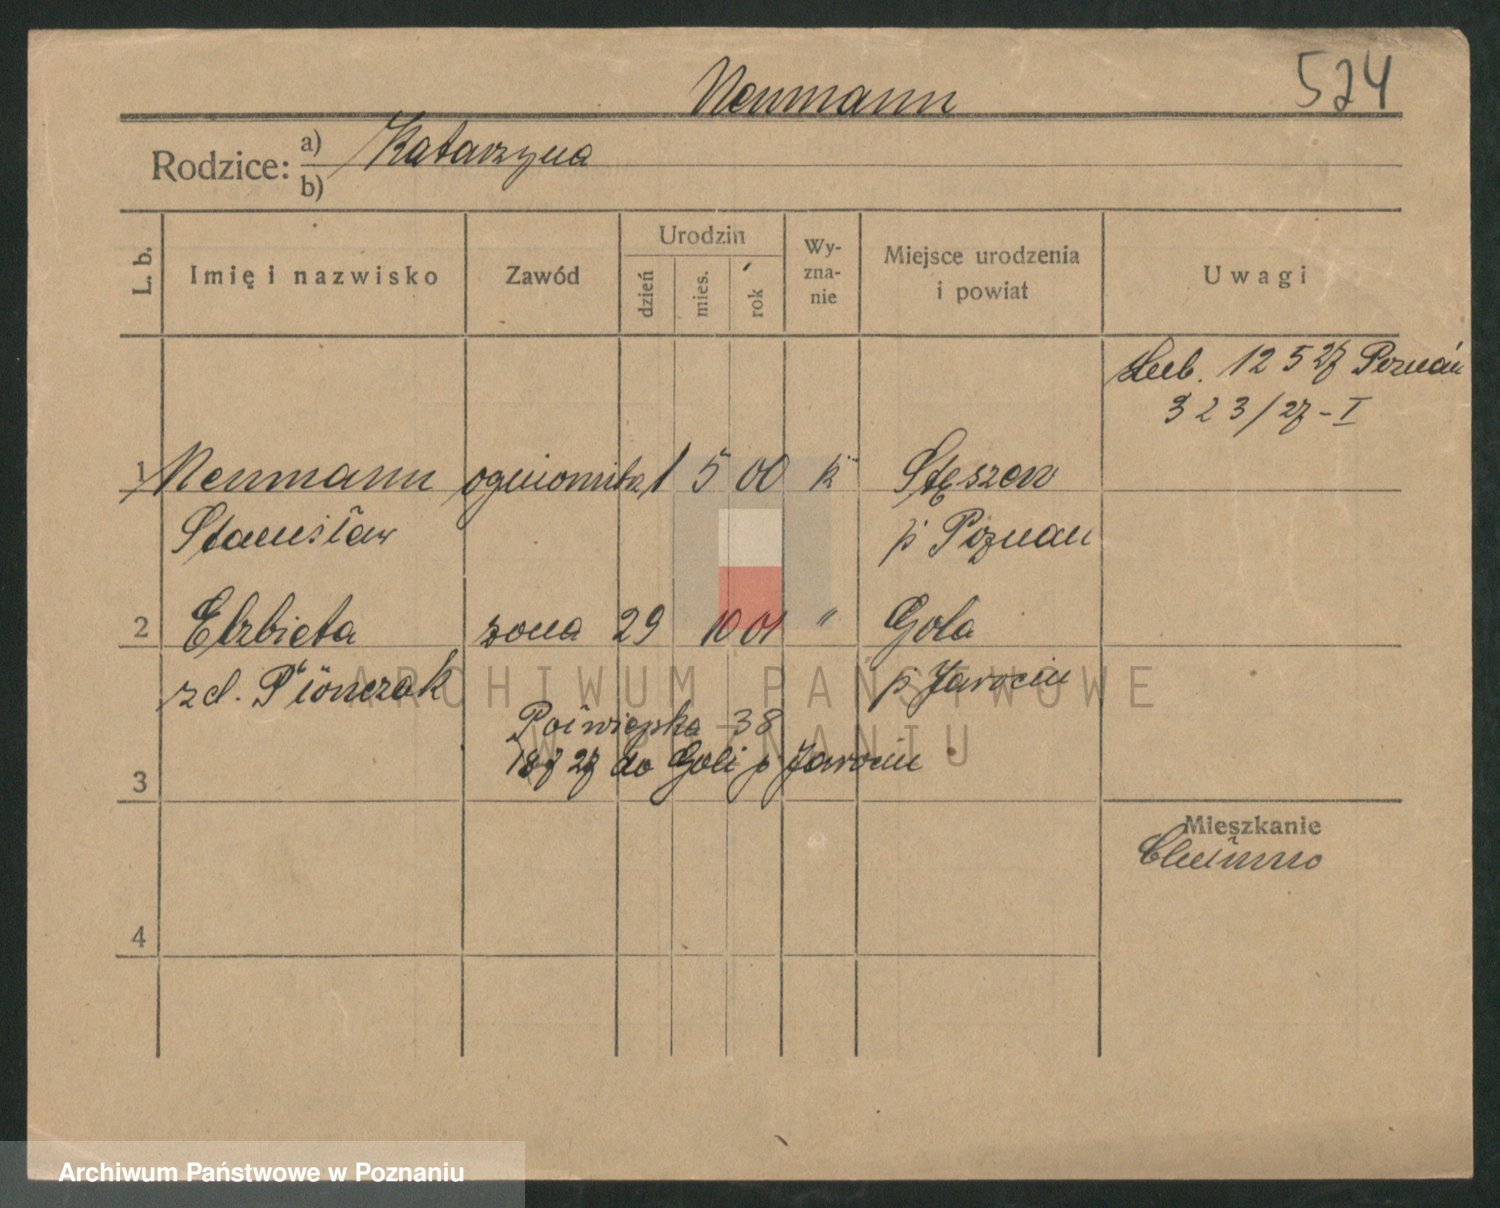 Neumann
524
Rodzice: a) Katarzyna
b)
L. b.
Imię i nazwisko
Zawód
Urodzin
dzień
mies.
rok
Wy-
zna-
nie
Miejsce urodzenia
i powiat
Uwagi
125 27 Poznań
323/27-I
1 Neumann ogniomistrz 1 5 00 k Stęszew
Stanisław p Poznan
2 Elzbieta zona 29 10 01 " Gola
zd. Piończak p Jarocin
38
18 7 27 do Goli p Jarocin
3
Mieszkanie
4
ARCHIWUM PAŃSTWOWE
W POZNANIU
Archiwum Państwowe w Poznaniu